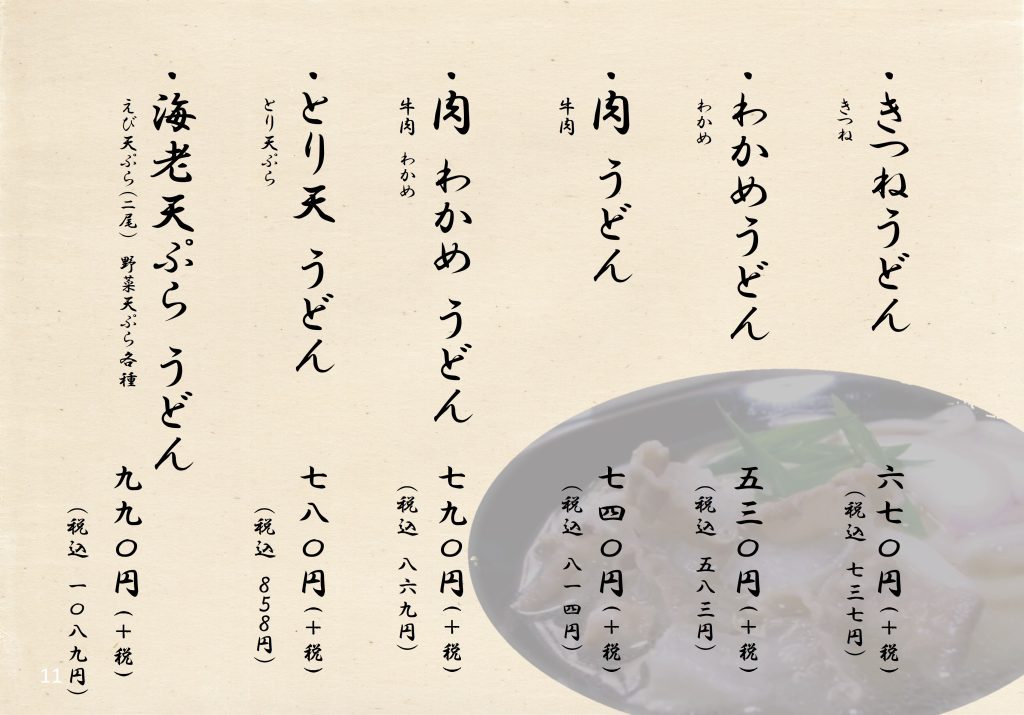 ・きつねうどん
きつね
六七〇円(+税)
(税込 七三七円)
・わかめうどん
わかめ
五三〇円(+税)
(税込 五八三円)
・肉 うどん
牛肉
七四〇円(+税)
(税込 八一四円)
・肉 わかめ うどん
牛肉 わかめ
七九〇円(+税)
(税込 八六九円)
・とり天 うどん
とり天ぷら
七八〇円(+税)
(税込 858円)
・海老天ぷら うどん
えび天ぷら(二尾) 野菜天ぷら各種
九九〇円(+税)
(税込 一〇八九円)
11